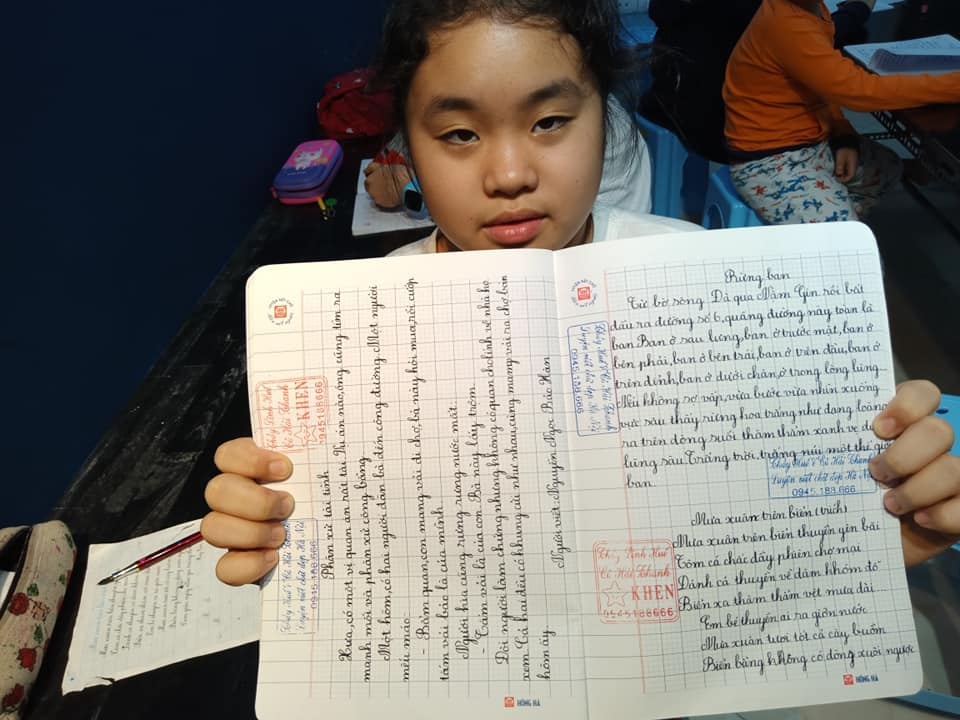 Phân xử tài tình
Xưa, có một vị quan án rất tài. Vụ án nào, ông cũng tìm ra
manh mối và phân xử công bằng.
Một hôm, có hai người đàn bà đến công đường. Một người
mếu máo:
- Bẩm quan, con mang vải đi chợ, bà này hỏi mua, rồi cướp
tấm vải bảo là của mình.
Người kia cũng rưng rưng nước mắt:
- Tấm vải là của con. Bà này lấy trộm.
Đòi người làm chứng nhưng không có, quan cho lính về nhà họ
xem. Cả hai đều có khung cửi như nhau, cùng mang vải ra chợ bán
hôm ấy.
Người viết: Nguyễn Ngọc Bảo Hân
Thầy Đình Huế
Cô Hải Thanh
KHEN
0945188666
Thầy Huế & Cô Hải Thanh
Luyện viết chữ đẹp Hà Nội
0945.188.666
HỒNG HÀ
Rừng ban
Từ bờ sông Đà qua Nằm Gin rồi bắt
đầu ra đường số 6, quãng đường này toàn là
ban. Ban ở sau lưng, ban ở trước mặt, ban ở
bên phải, ban ở bên trái, ban ở trên đầu, ban ở
trên đỉnh, ban ở dưới chân, ở trong lũng lũng...
Nếu không sợ vấp, vừa bước vừa nhìn xuống
vực sâu thấy rừng hoa trắng như đang loáng
ra trên dòng suối thăm thẳm xanh ve dưới
lũng sâu. Trắng trời, trắng núi một thế giới
ban.
Thầy Huế & Cô Hải Thanh
Luyện viết chữ đẹp Hà Nội
0945.188.666
Thầy Huế & Cô Hải Thanh
Luyện viết chữ đẹp Hà Nội
0945.188.666
Mưa xuân trên biển (trích)
Mưa xuân trên biển thuyền yên bãi
Tôm cá chắc đầy phiên chợ mai
Đánh cá thuyền về dăm khóm đỗ
Biển xa thăm thẳm vệt mưa dài
Em bé thuyền ai ra giỡn nước
Mưa xuân tươi tốt cả cây buồm
Biển bằng không có dòng xuôi ngược
Thầy Đình Huế
Cô Hải Thanh
KHEN
0945188666
HỒNG HÀ